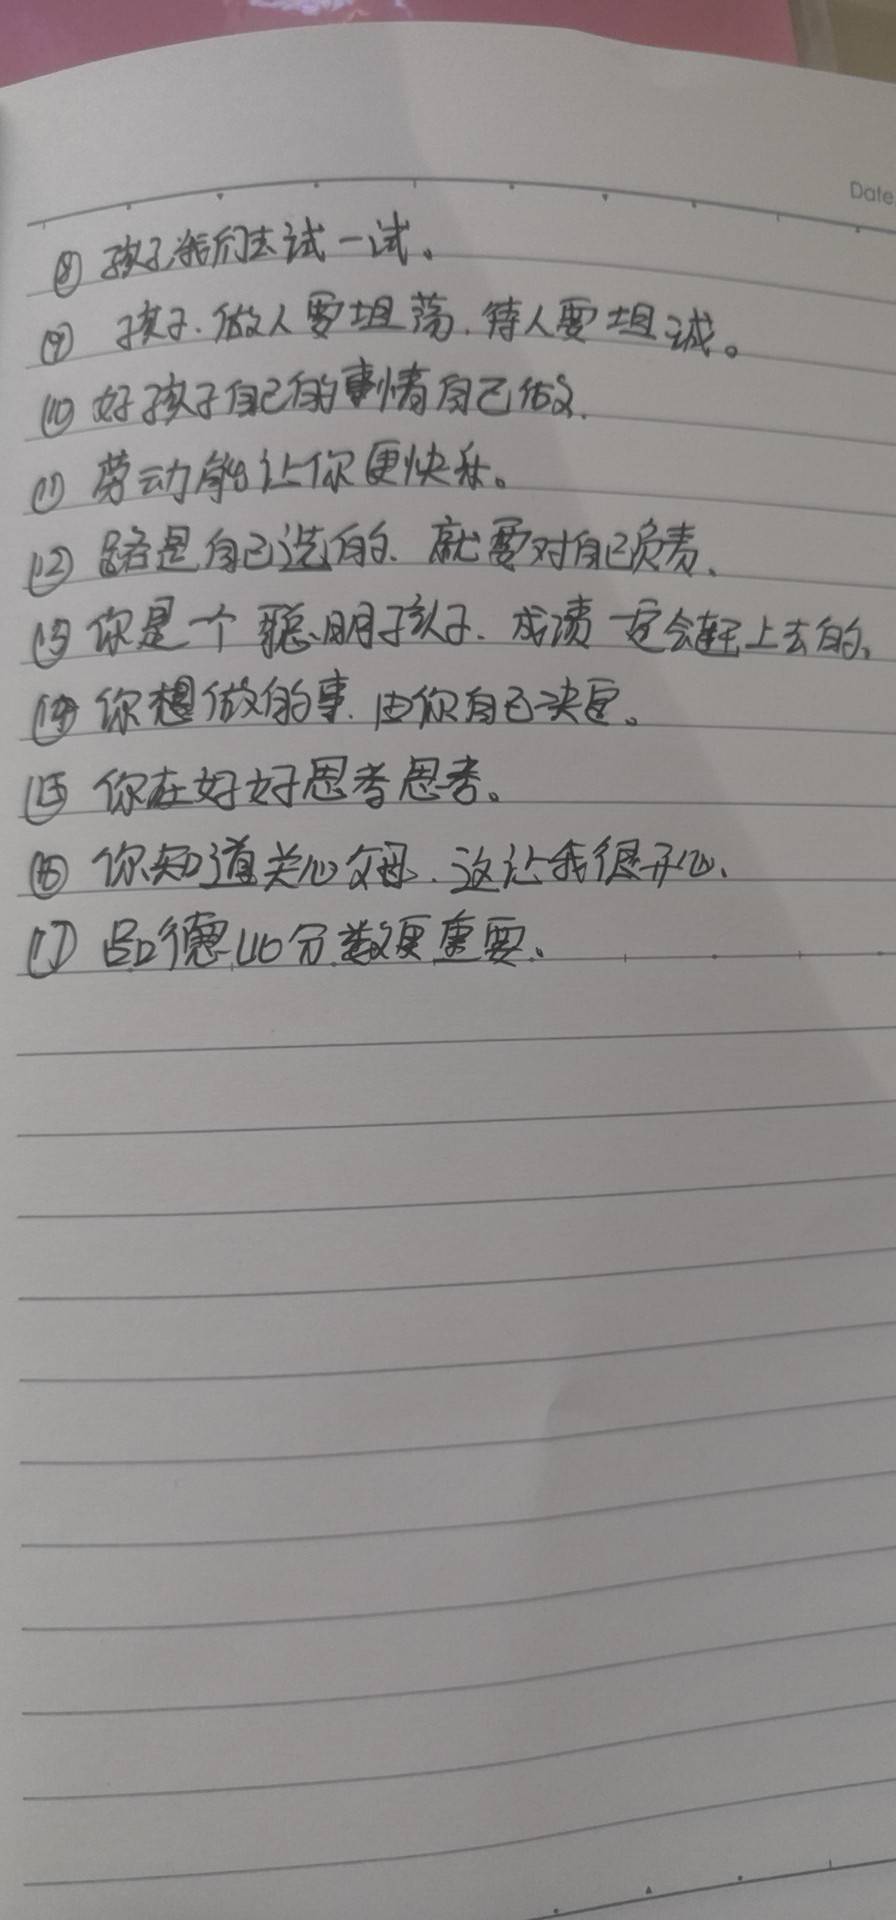 Date
⑧ 孩子我们去试一试。
⑨ 孩子.做人要坦荡.待人要坦诚。
⑩ 好孩子自己的事情自己做.
⑪ 劳动能让你更快乐。
⑫ 路是自己选的、就要对自己负责、
⑬ 你是一个聪明孩子.成绩一定会赶上去的、
⑭ 你想做的事.由你自己决定。
⑮ 你在好好思考思考。
⑯ 你知道关心父母.这让我很开心、
⑰ 品德比分数更重要、